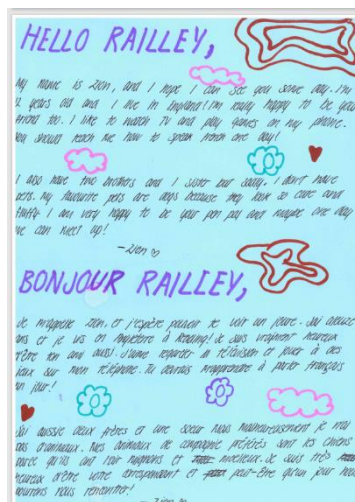 HELLO RAILLEY,
My name is Zion, and I hope I can see you some day. I'm
years old and I live in England! I'm really happy to be your
friend too. I like to watch TV and play games on my phone.
You should teach me how to speak one day!
I also have two brothers and 1 sister but sadly, I don't have
pets. My favourite pets are dogs because they look so cute and
fluffy I am very happy to be your pen pal and maybe one day
we can meet up!
-Zion ♡
BONJOUR RAILLEY,
Je m'appelle Zion, et j'espère pouvoir te voir un jour. J'ai
ans et je vis en à Reading! Je suis vraiment heureux
d'être ton ami aussi. J'aime regarder la télévision et jouer à des
jeux sur mon téléphone. Tu devrais m'apprendre à parler français
un jour!
J'ai aussi deux frères et une soeur mais malheureusement je n'ai
pas d'animaux. Mes animaux de compagnie préférés sont les chiens
parce qu'ils ont l'air mignons et moelleux. Je suis très
heureux d'être votre correspondant et peut-être qu'un jour nous
pourrons nous rencontrer!
-Zion